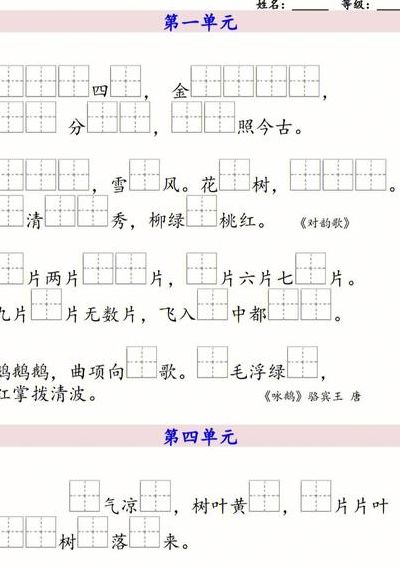 姓名：______ 等级：____
第一单元
四 ， 金 ，
分 ， 照今古。
，雪 风。花 树， 。
清 秀，柳绿 桃红。 《对韵歌》
片两片 片， 片六片七 片。
九片 片无数片，飞入 中都 。
鹅鹅，曲项向 歌。 毛浮绿 ，
红掌拨清波。 《咏鹅》骆宾王 唐
第四单元
气凉 ，树叶黄 ， 片片叶
树 落 来。